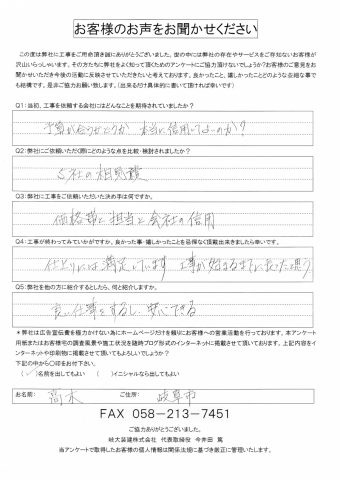 お客様のお声をお聞かせください
この度は弊社に工事をご用命頂き誠にありがとうございました。世の中には弊社の存在やサービスをご存知ないお客様が
沢山いらっしゃいます。その方たちに弊社をよく知って頂くためのアンケートにご協力頂けないでしょうか？お客様のご意見をお
聞かせいただき今後の活動に反映させていただきたいと考えております。良かったこと、嬉しかったことどのような些細な事で
も結構です。是非ご協力お願い致します。（出来るだけ具体的に書いて頂ければ幸いです）
Q1:当初、工事を依頼する会社にはどんなことを期待されていましたか？
予算が合うかどうか 本当に信用してよいのか？
Q2:弊社にご依頼いただく際にどのような点を比較・検討されましたか？
5社の相見積
Q3:弊社に工事をご依頼いただいた決め手は何ですか。
価格帯と担当と会社の信用
Q4:工事が終わってみていかがですか。良かった事・嬉しかったことを忌憚なく頂戴出来ましたら幸いです。
仕上りには満足しています 工事が始まるまで
Q5:弊社を他の方に紹介するとしたら、何と紹介しますか。
良い仕事をするし、安心できる
＊弊社は広告宣伝費を極力かけない為にホームページだけを頼りにお客様への営業活動を行っております。本アンケート
用紙またはお客様宅の調査風景や施工状況を随時ブログ形式のインターネットに掲載させて頂いております。上記内容をイ
ンターネットや印刷物に掲載させて頂いてもよろしいでしょうか？
下記の中から〇印をお付下さい。
（✓）名前を出してもよい （ ）イニシャルなら出してもよい
お名前： 高木 ご住所： 岐阜市
FAX 058-213-7451
ご協力ありがとうございました。
岐大装建株式会社 代表取締役 今井田 篤
当アンケートで取得したお客様の個人情報は関係法規に基づき厳正に管理いたします。